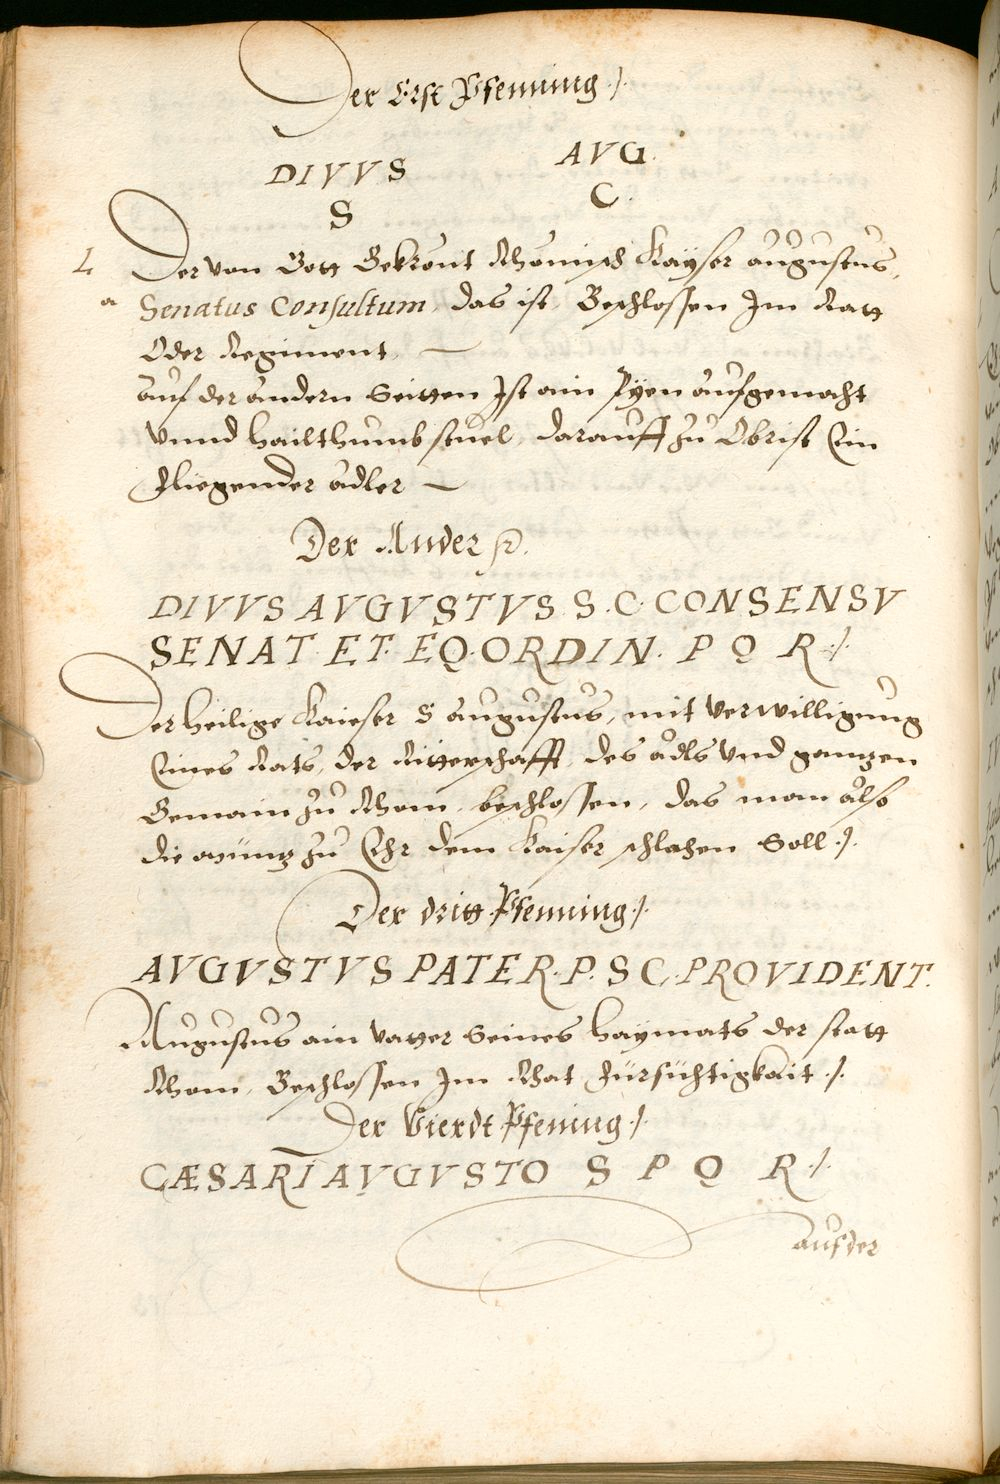 Der Erst Pfenning ./.
DIVVS AVG.
S C.
L Der von Gott Gekront Rhömisch Kayser augustus,
a Senatus Consultum, das ist, Beschlossen Im Ratt
Oder Regiment, —
auf der andern Seitten Ist ain aufgemacht
Vnnd hailthumb stuel, darauff zu Obrist Ein
fliegender adler —
Der Ander
DIVVS AVGVSTVS S. C. CONSENSV
SENAT. ET. EQ. ORDIN. P Q R ./.
Der heilige Kaieser augustus, mit verwilligung
Eines Rats, der Ritterschafft, des adls vnd gantzen
Gemain zu Rhom, beschlossen, das man also
die müntz zu Ehr dem Kaiser schlahen Soll ./.
Der dritt Pfenning ./.
AVGVSTVS PATER. P. S C. PROVIDENT.
Augustus ain vatter Seines haymats der statt
Rhom, Beschlossen Im Rhat fürsichtigkait ./.
Der Vierdt Pfening ./.
CÆSARI AVGVSTO S P Q R ./.
auf der